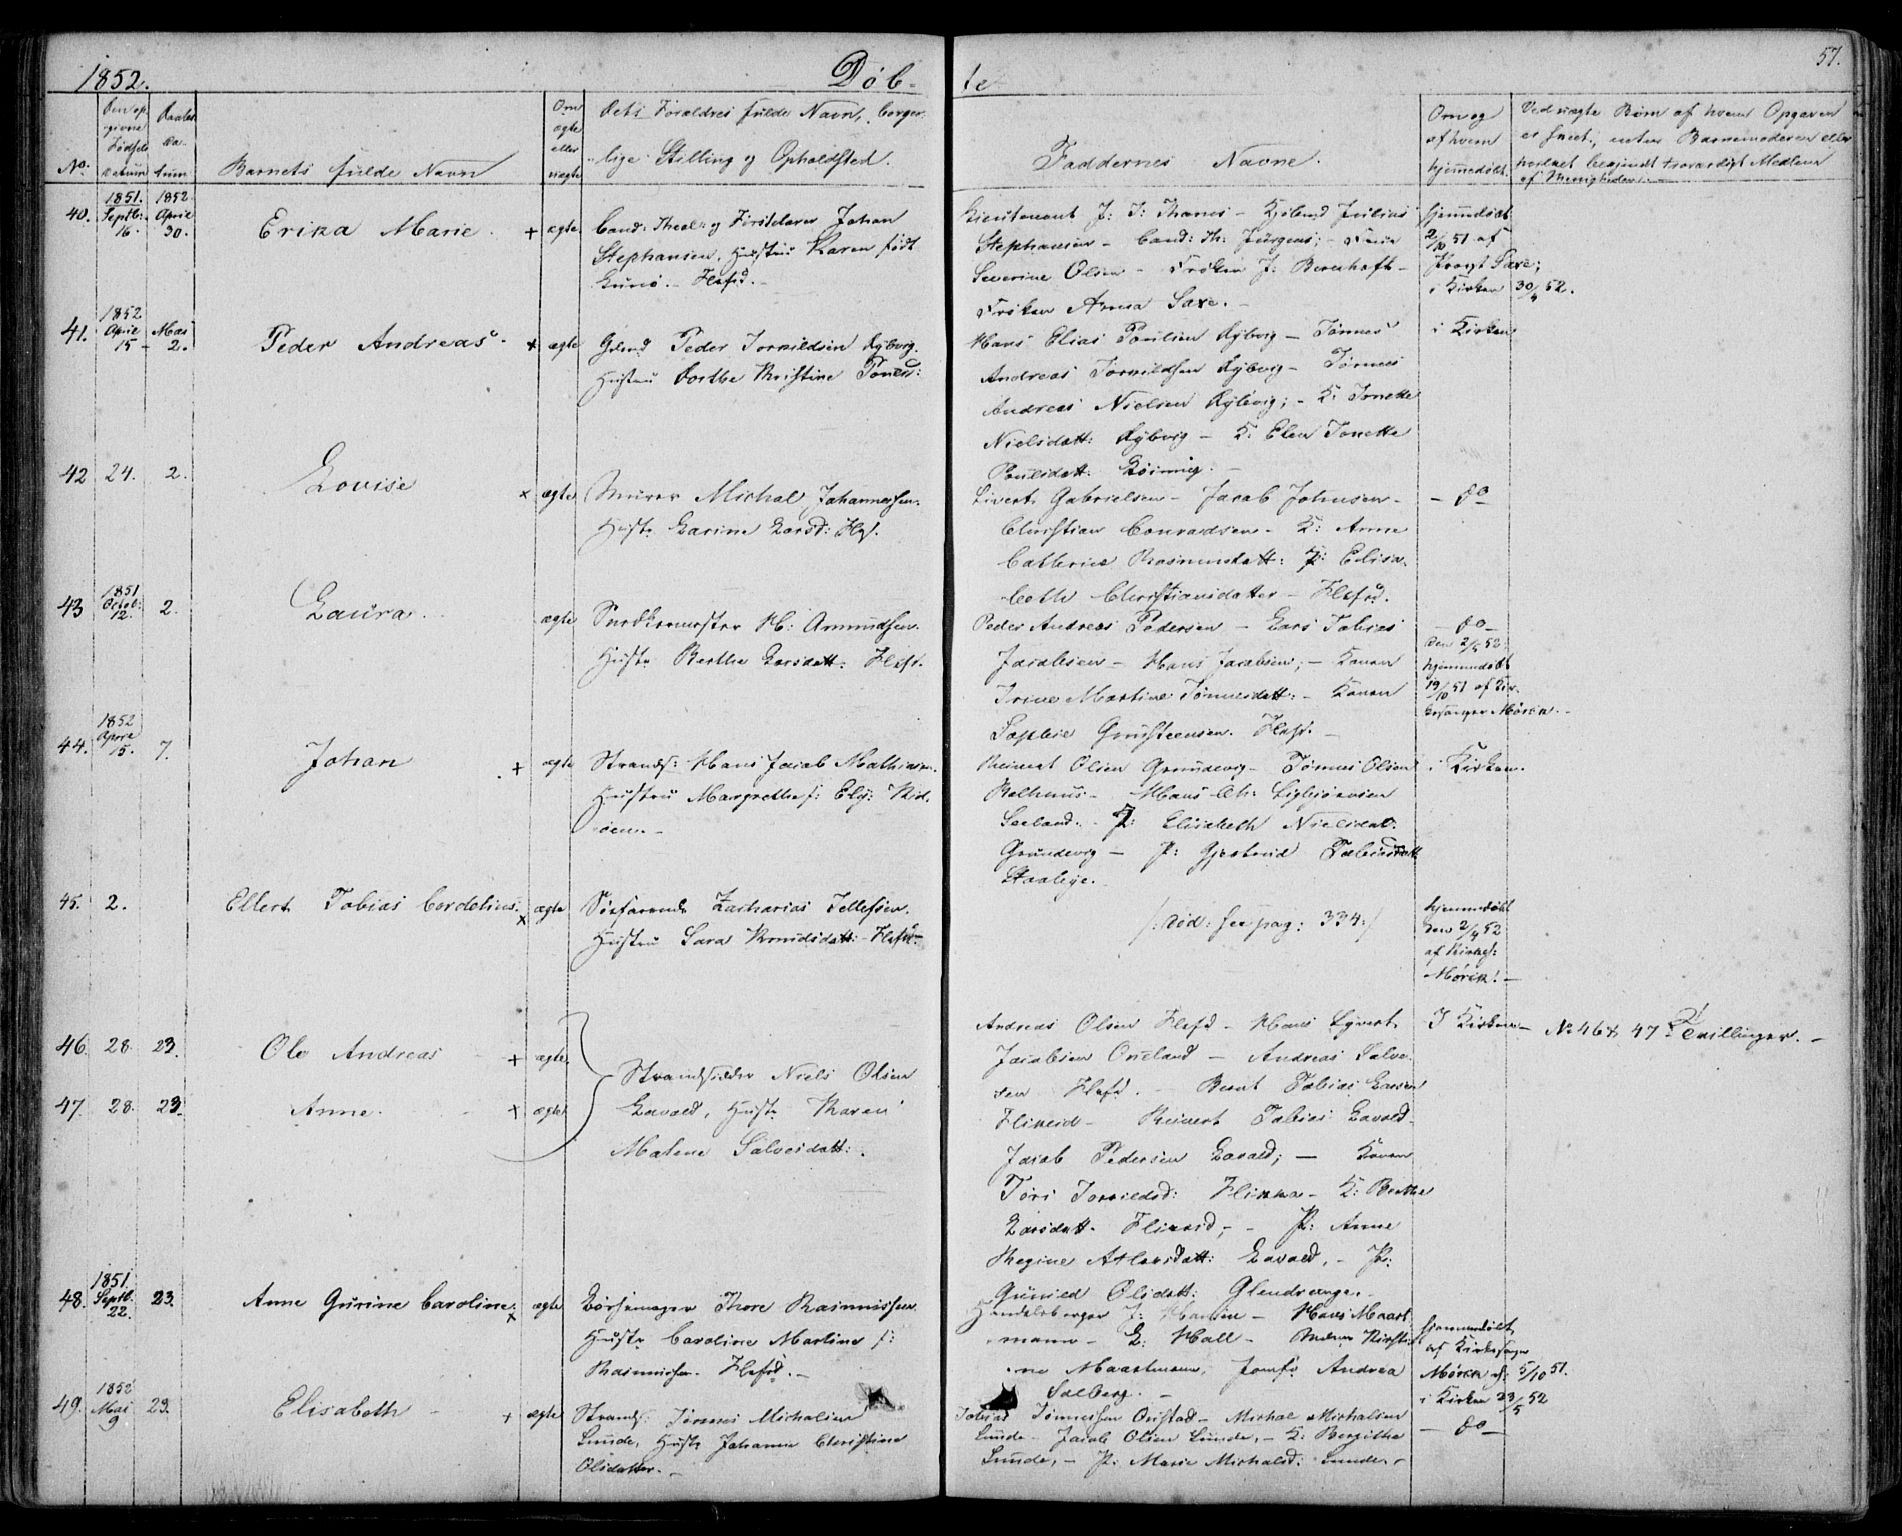 1852. Døb- te 57.
No. Den op-
givne
Fødsels
Datum Daabs
Da-
tum Barnets fulde Navn Om
ægte
eller
uægte Dets Forældres fulde Navn, borger-
lige Stilling og Opholdsted.
Faddernes Navne. Om og
af hvem
hjemmedøbt. Ved uægte Børn af hvem Opgaven
er skeet, enten Barnemoderen eller
troværdigt Medlem
af Menigheden.
40. 1851. Septb: 16. 1852 April 30. Erika Marie. + ægte Cand: Theol: og Førstelærer Johan
Stephansen, Hustru Karen født
Flefd.
Lieutenant J: I: Thanes - Kjøbmd Julius
Stephansen - Cand: Th: Jürgens; - Frue
Severine Olsen - Frøken J: Berenhoft -
Frøken Anna Saxe. -
hjemmedøbt
2/10 51 af
Provst Saxe;
i Kirken 30/4 52.
41. 1852 April 15 - Mai 2. Peder Andreas. + ægte Grmd Peder Torkildsen Rybvig.
Hustru Dorthe Kristine Tønnesd:
Hans Elias Poulsen Rybvig - Tønnes
Andreas Torkildsen Rybvig - Tønnes
Andreas Nielsen Rybvig; - K: Tonette
Nielsdatt: Rybvig - K: Elen Tonette
Poulsdatt:
i Kirken
42 24. 2. Lovise × ægte Murer Michal Johannessen.
Hustr. Larine Larsd: Flf.
Sivert Gabrielsen - Jacob Johnsen -
Christian Conradsen - K: Anne
Cathrine Rasmusdatt: P: Elisa-
beth Christiansdatter - Flefd.
- do -
43 1851 Octob: 12. 2. Laura. ægte Snedkermester H. Amundsen.
Hustr. Berthe Larsdatt. Flefd.
Peder Andreas Pedersen - Lars Tobias
Jacobsen - Hans Jacobsen; - Konen
Trine Martine Tønnesdatt: - Konen
Sophie Flefd. -
- do -
den 2/5 52
hjemmedøbt
19/10 51 af Kir-
kesanger Mørck. -
44. 1852 April 15. 7. Johan + ægte Strands: Hans Jacob Mathiasen.
Hustru Margrethe f: Elg:
Reinert Olsen Grundevig - Tønnes Olsen
Hans Ch:
Seeland. - P: Elisabeth Nielsdat:
Grundevig - P: Gjertrud Tobiasdatt
i Kirken.
45. 2. Ellert Tobias Cordelius. × ægte Søefarende Zacharias Tellefsen.
Hustru Sara Knudsdatt: - Flefd.
/: død: see pag: 334:/
hjemmedøbt
den 2/4 52
af Kirkes:
Mørck! -
46. 28. 23. Ole Andreas + ægte
47. 28. 23. Anne. + ægte
Strandsidder Niels Olsen
Lavold, Hustr. Karen
Malene Salvesdatt:
Andreas Olsen Flefd - Hans Syvert
Jacobsen - Andreas Salve-
sen Flefd. - Bernt Tobias Larsen
Flikeid - Reinert Tobias Lavold -
Jacob Pedersen Lavold; - Konen
Tøri Torkildsd: Flikka - K: Berthe
Larsdatt. Flikeid; - P: Anne
Regine Atlaksdatt: Lavold, - P:
Gunild Olsdatt: Glendrange.
I Kirken - No 46 & 47 Tvillinger. -
48. 1851. Septb. 22. 23. Anne Gurine Caroline. × ægte Bøssemager Thore Rasmussen
Hustr. Caroline Martine f:
Rasmussen. Flefd. -
Handelsborger J: Hansen - Hans Maart-
mann - L: Hall - Madam Kirsti-
ne Maartmann, Jomfr Andrea
Salberg. -
hjemmedøbt
af Kirkesanger
Mørck d: 5/10 51.
i Kirken 23/5 52
49. 1852 Mai 9 23. Elisabeth - + ægte Strands: Tønnes Michalsen
Lunde, Hustr Johanne Christine
Olsdatter. -
Tobias Tønnessen - Michal Michalsen
Lunde - Jacob Olsen Lunde, - K: Bergithe
Lunde, - P: Marie Michalsd: Lunde, -
- do -